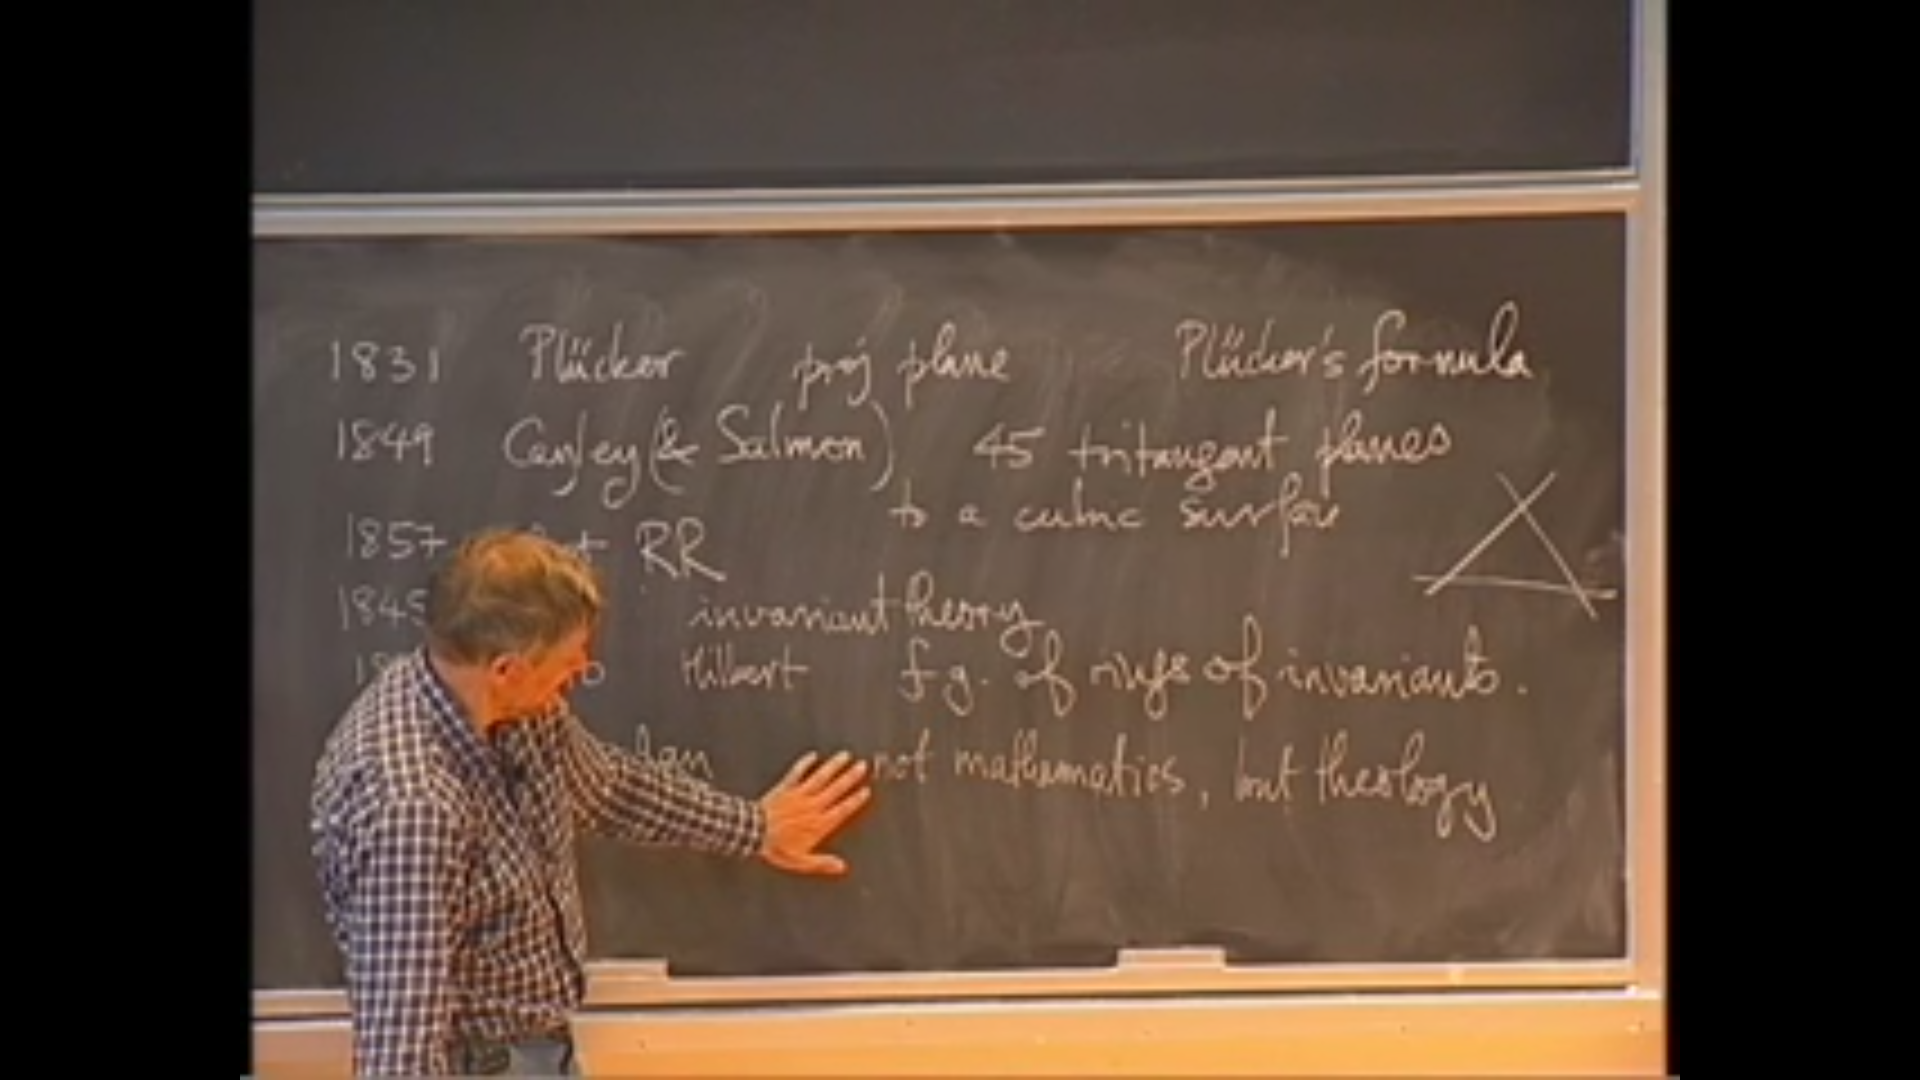 1831 Plücker proj plane Plücker's formula
1849 Cayley (& Salmon) 45 tritangent planes
to a cubic surface
1857 RR
1845 invariant theory
Hilbert f.g. of rings of invariants.
not mathematics, but theology